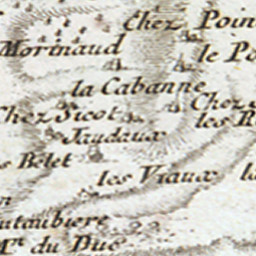 Chez Poin
Morinaud
le Po
la Cabanne
Chez Sicot
Chez
les R
Jaudaux
s Belet
les Viaux
la
outaubiere
M.^n du Duc